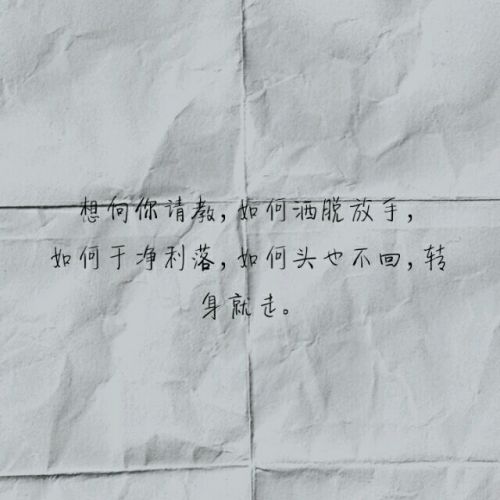 想向你请教,如何洒脱放手,
如何干净利落,如何头也不回,转
身就走。